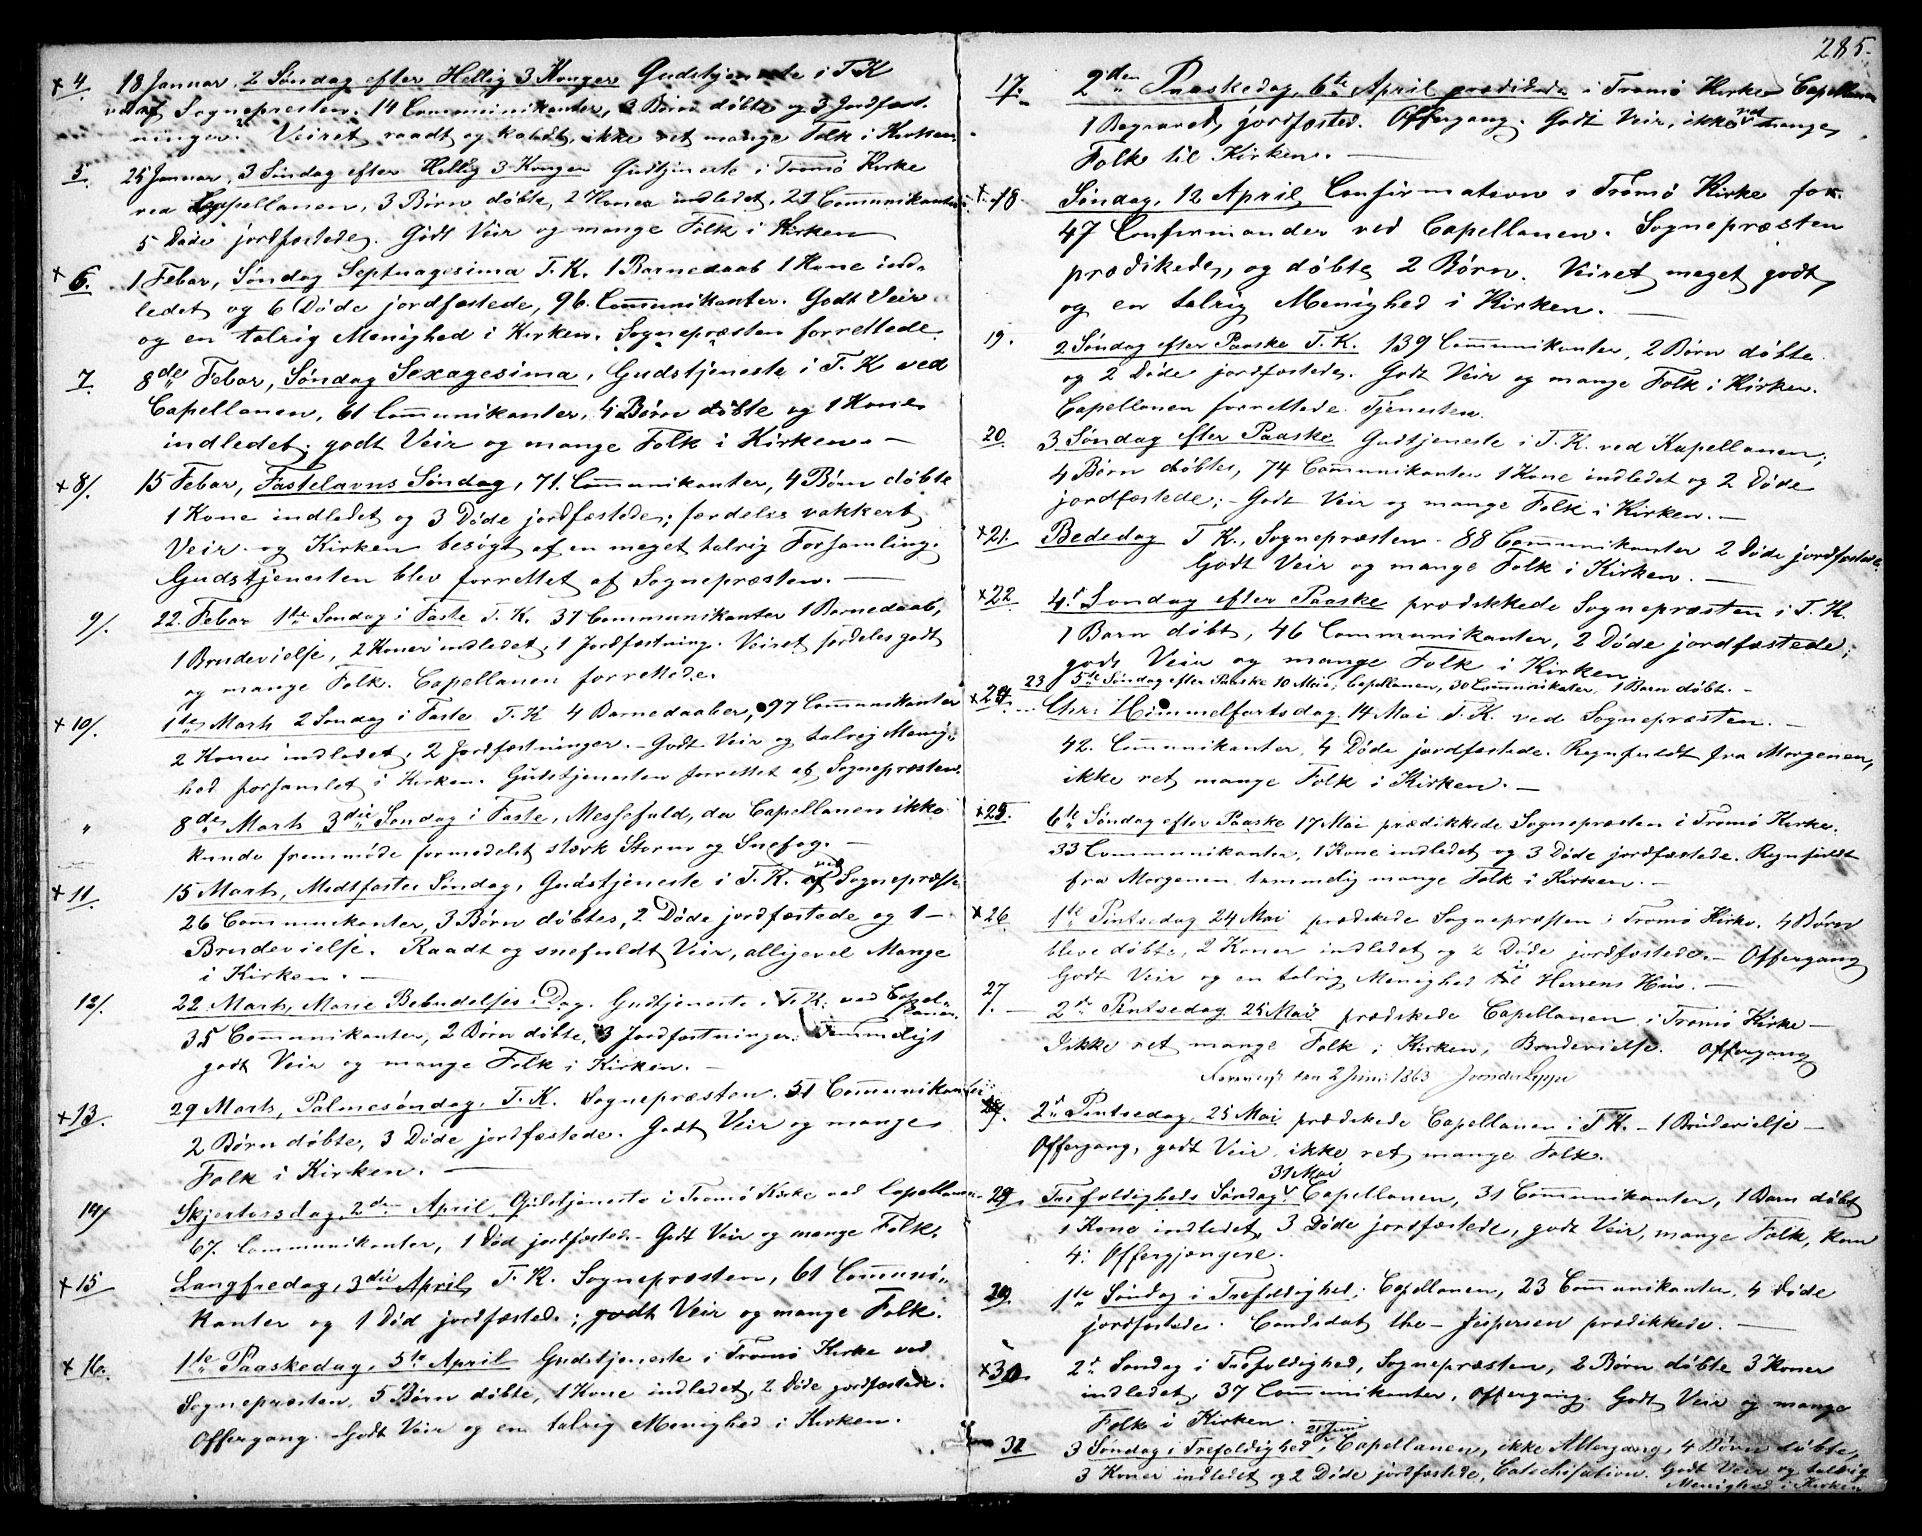 x 4. 18 Januar, 2 Søndag efter Hellig 3 Konger Gudstjeneste i T. K
ved af Sognepresten. 14 Communikanter, 3 Børn døbte og 3 Jordfæst-
ninger. Veiret raadt og koldt, ikke ret mange Folk i Kirken.
5. 25 Januar, 3 Søndag efter Hellig 3 Konger Gudtjeneste i Tromø Kirke
ved Capellanen, 3 Børn døbte, 2 Koner indledet, 21 Communikanter
5 Døde jordfæstede. Godt Veir og mange Folk i Kirken
x 6. 1 Febar, Søndag Septuagesima T. K. 1 Barnedaab 1 Kone ind-
ledet og 6 Døde jordfæstede, 96 Communikanter. Godt Veir
og en talrig Menighed i Kirken. Sognepræsten forrettede.
7. 8de Febar, Søndag Sexagesima, Gudstjeneste i T. K ved
Capellanen, 61 Communikanter, 4 Børn døbte og 1 Kone
indledet, godt Veir og mange Folk i Kirken. —
x 8/. 15 Febar, Fastelavns Søndag, 71. Communikanter, 4 Børn døbte
1 Kone indledet og 3 Døde jordfæstede; fordeles vakkert
Veir og Kirken besøgt af en meget talrig Forsamling.
Gudstjenesten blev forrettet af Sognepræsten. —
9/. 22. Febar 1ste Søndag i Faste T. K. 37 Communikanter 1 Barnedaab,
1 Brudevielse, 2 Koner indledet, 1 Jordfæstning. Veiret fordeles godt
og mange Folk. Capellanen forrettede.
x 10/. 1ste Marts 2 Søndag i Faste T. K 4 Barnedaaber, 97 Communikanter
2 Koner indledet, 2 Jordfæstninger. – Godt Veir og talrig Menig-
hed forsamlet i Kirken. Gudstjenesten forrettet af Sognepræsten.
" 8de Marts 3die Søndag i Faste, Messefald, da Capellanen ikke
kunde fremmøde formedelst stærk Storm og Snefog. —
x 11. 15 Marts, Midtfaste Søndag, Gudstjeneste i T. K. af ved Sognepræst
26 Communikanter, 3 Børn døbtes, 2 Døde jordfæstede og 1 –
Brudevielse. Raadt og snefuldt Veir, alligevel Mange
i Kirken. —
12/. 22 Marts, Marie Bebudelses Dag. Gudtjeneste i T. K. ved Capel-
lanen.
35 Communikanter, 2 Børn døbte, 3 Jordfæstninger. Temmeligt
godt Veir og mange Folk i Kirken. —
x 13. 29 Marts, Palmesøndag, T. K. Sognepræsten. 51 Communikanter
2 Børn døbte, 3 Døde jordfæstede. Godt Veir og mange
Folk i Kirken. —
14/ Skjertorsdag, 2den April, Gudstjeneste i Tromø Kirke ved Capellanen
67. Communikanter, 1 Død jordfæstede – Godt Veir og mange Folk.
x 15 Langfredag, 3die April, T. K. Sognepræsten, 61 Communi-
kanter og 1 Død jordfæstede; godt Veir og mange Folk.
x 16. 1ste Paaskedag, 5te April Gudstjeneste i Tromø Kirke ved
Sognepræsten, 5 Børn døbte, 1 Kone indledet, 2 Døde jordfæstede.
Offergang. Godt Veir og en talrig Menighed i Kirken.
285.
17. 2den Paaskedag, 6te April prædikede i Tromø Kirke Capellanen
1 Begravet, jordfæsted. Offergang. Godt Veir, ikke ret mange
Folk til Kirken. —
x 18. Søndag, 12 April, Confirmation i Tromø Kirke for
47 Confirmander ved Capellanen. Sognepræsten
prædikede, og døbte 2 Børn. Veiret meget godt,
og en talrig Menighed i Kirken. —
19. 2 Søndag efter Paaske T. K. 139 Communikanter, 2 Børn døbte
og 2 Døde jordfæstede. Godt Veir og mange Folk i Kirken.
Capellanen forrettede Tjenesten.
20. 3 Søndag efter Paaske Gudtjeneste i T. K. ved Kapellanen;
4 Børn døbtes, 74 Communikanter 1 Kone indledet og 2 Døde
jordfæstede; – Godt Veir og mange Folk i Kirken. —
x 21. Bededag T K., Sognepræsten. 88 Communikanter 2 Døde jordfæstede.
Godt Veir og mange Folk i Kirken. —
x 22 4. Søndag efter Paaske prædikkede Sognepræsten i T. K.
1 Barn døbt, 46 Communikanter, 2 Døde jordfæstede;
godt Veir og mange Folk i Kirken
23 5te Søndag efter Paaske 10 Mai, Capellanen, 30 Communikater, 1 Barn døbt. –
x 24. Chr: Himmelfartsdag 14 Mai T. K. ved Sognepræsten. —
42. Communikanter, 4 Døde jordfæstede. Regnfuldt fra Morgenen,
ikke ret mange Folk i Kirken. —
x 25. 6te Søndag efter Paaske 17 Mai prædikkede Sognepræsten i Tromø Kirke.
33 Communikanter, 1 Kone indledet og 3 Døde jordfæstede. Regnfuldt
fra Morgenen, temmelig mange Folk i Kirken. —
x 26 1ste Pintsedag 24 Mai prædikede Sognepræsten i Tromø Kirke. 4 Børn
bleve døbte, 2 Koner indledet og 2 Døde jordfæstede. – Offergang
Godt Veir og en talrig Menighed i Herrens Huus. —
27. – 2den Pintsedag 25 Mai prædikede Capellanen i Tromø Kirke –
Ikke ret mange Folk i Kirken, Brudevielse. Offergang
2 Juni 1863
2den Pintsedag, 25 Mai prædikede Capellanen i T K. – 1 Brudevielse –
Offergang, godt Veir, ikke ret mange Folk.
31 Mai
Trefoldigheds Søndag, Capellanen, 31 Communikanter, 1 Barn døbt
1 Kone indledet, 3 Døde jordfæstede, godt Veir, mange Folk, kun
4: Offergjængere.
29. 1ste Søndag i Trefoldighed; Capellanen, 23 Communikanter, 4 Døde
jordfæstede. Candidat theo– Jespersen prædikkede. —
x 30. 2den Søndag i Trefoldighed, Sognepræsten, 2 Børn døbte 3 Koner
indledet, 37 Communikanter, Offergang. Godt Veir og mange
Folk i Kirken.
31 3 Søndag i Trefoldighed, 21 Juni Capellanen, ikke Altergang, 4 Børn døbte,
3 Koner indledet og 2 Døde jordfæstede, Catechisation. Godt Veir og talrig
Menighed i Kirken